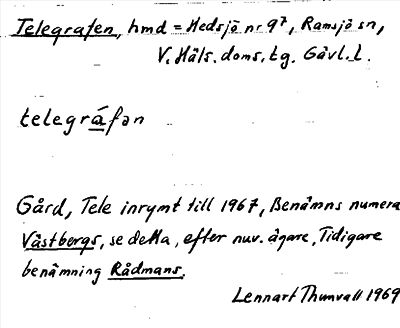 Telegrafen, hmd = Hedsjö nr 9⁷, Ramsjö sn,
V. Häls. doms. tg. Gävl. l.
telegrá̱fən
Gård, Tele inrymt till 1967, Benämns numera
Västbergs, se detta, efter nuv. ägare, Tidigare
benämning Rådmans.
Lennart Thunvall 1969